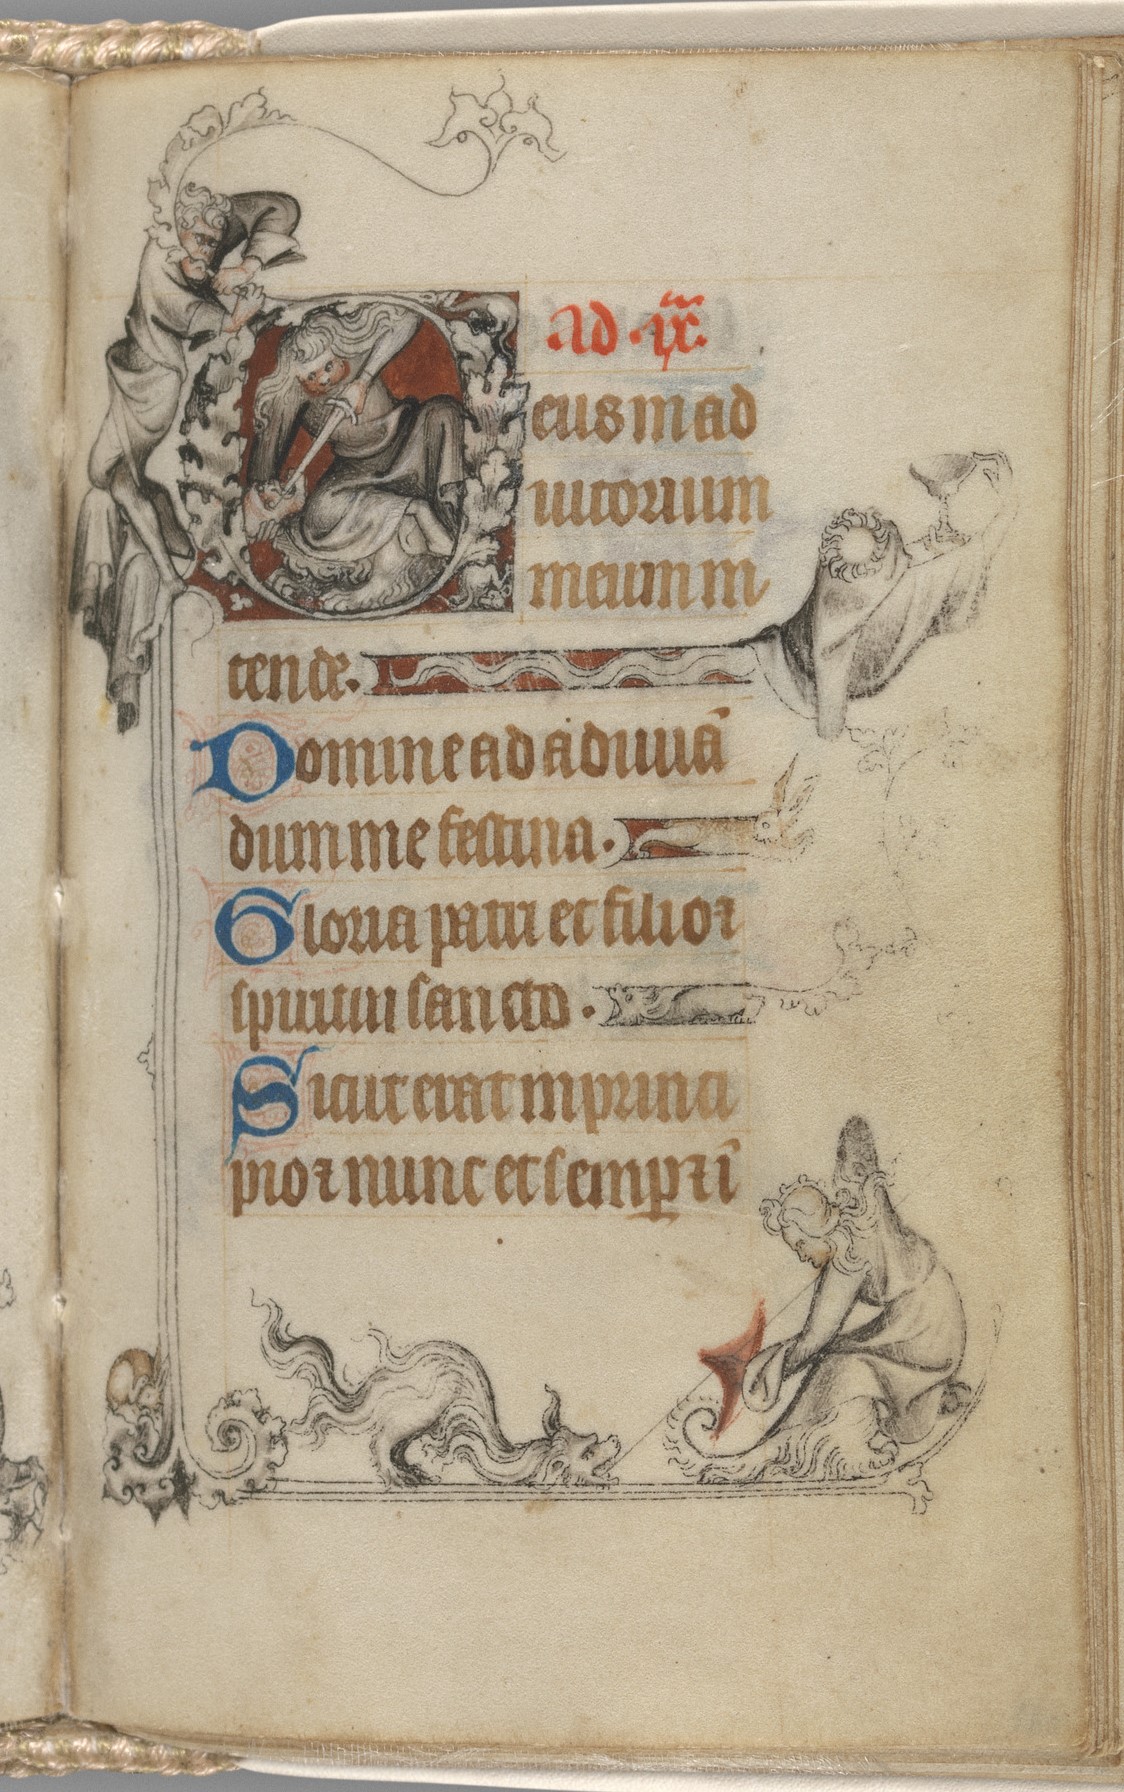 ad ·ixͣ·
Deus in ad
iutorium
meum in
tende.
Domine ad adiuuā
dum me festina.
Gloria patri et filio ⁊
spiritui sancto.
Sicut erat in princi
pio ⁊ nunc et semꝑ ⁊ ī